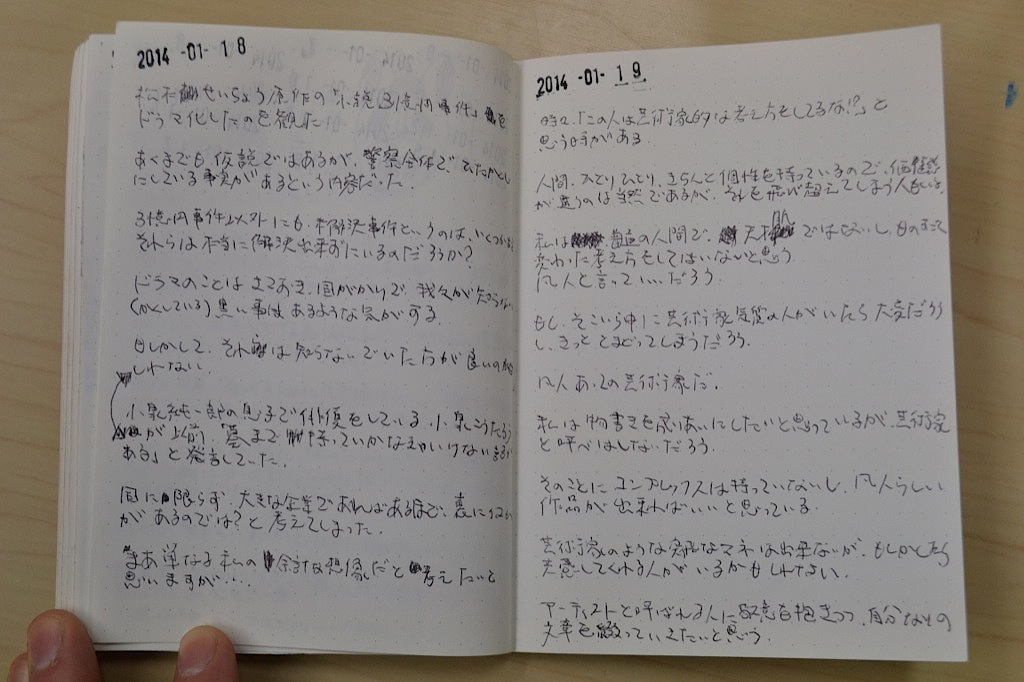 2014 -01- 18
松本せいちょう原作の「小説3億円事件」を
ドラマ化したのを観た。
あくまでも、仮説ではあるが、警察全体で
にしている事実があるという内容だった。
3億円事件以外にも、未解決事件というのは、いくつか
それらは本当に解決出来ずにいるのだろうか?
ドラマのことはさておき、国がかりで、我々が知らない
(かくしている)黒い事はあるような気がする。
もしかして、それは知らないでいた方が良いのかも
しれない。
小泉純一郎の息子で俳優をしている、小泉こうたろう
が以前、「墓まで持っていかなえかいけない
ある」と発言していた。
国に限らず、大きな企業であればあるほど、裏に何か
があるのでは?と考えてしまった。
まあ単なる私の余計な想像だと考えたいと
思いますが…
2014 -01- 19
時々、「この人は芸術家的な考え方をしてるな!?」と
思う時がある。
人間、ひとりひとり、きちんと個性を持っているので、価値感
が違うのは当然であるが、それを飛び超えてしまう人もいる。
私は普通の人間で、天才肌ではないし、ものすごく
変わった考え方をしてはいないと思う。
凡人と言っていいだろう。
もし、そこいら中に芸術家気質の人がいたら大変だろう
し、きっととまどってしまうだろう。
凡人あっての芸術家だ。
私は物書きを成りあいにしたいと思っているが、芸術家
と呼べはしないだろう。
そのことにコンプレックスは持っていないし、凡人らしい
作品が出来ればいいと思っている。
芸術家のような斬新なマネは出来ないが、もしかしたら
共感してくれる人がいるかもしれない。
アーティストと呼ばれる人に敬意を抱きつつ、自分なりの
文章を綴っていきたいと思う。